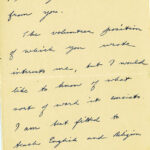 from you.
The volunteer position
of which you wrote
interests me, but I would
like to know of what
sort of work it consists
I am but fitted to
teach English and Religion